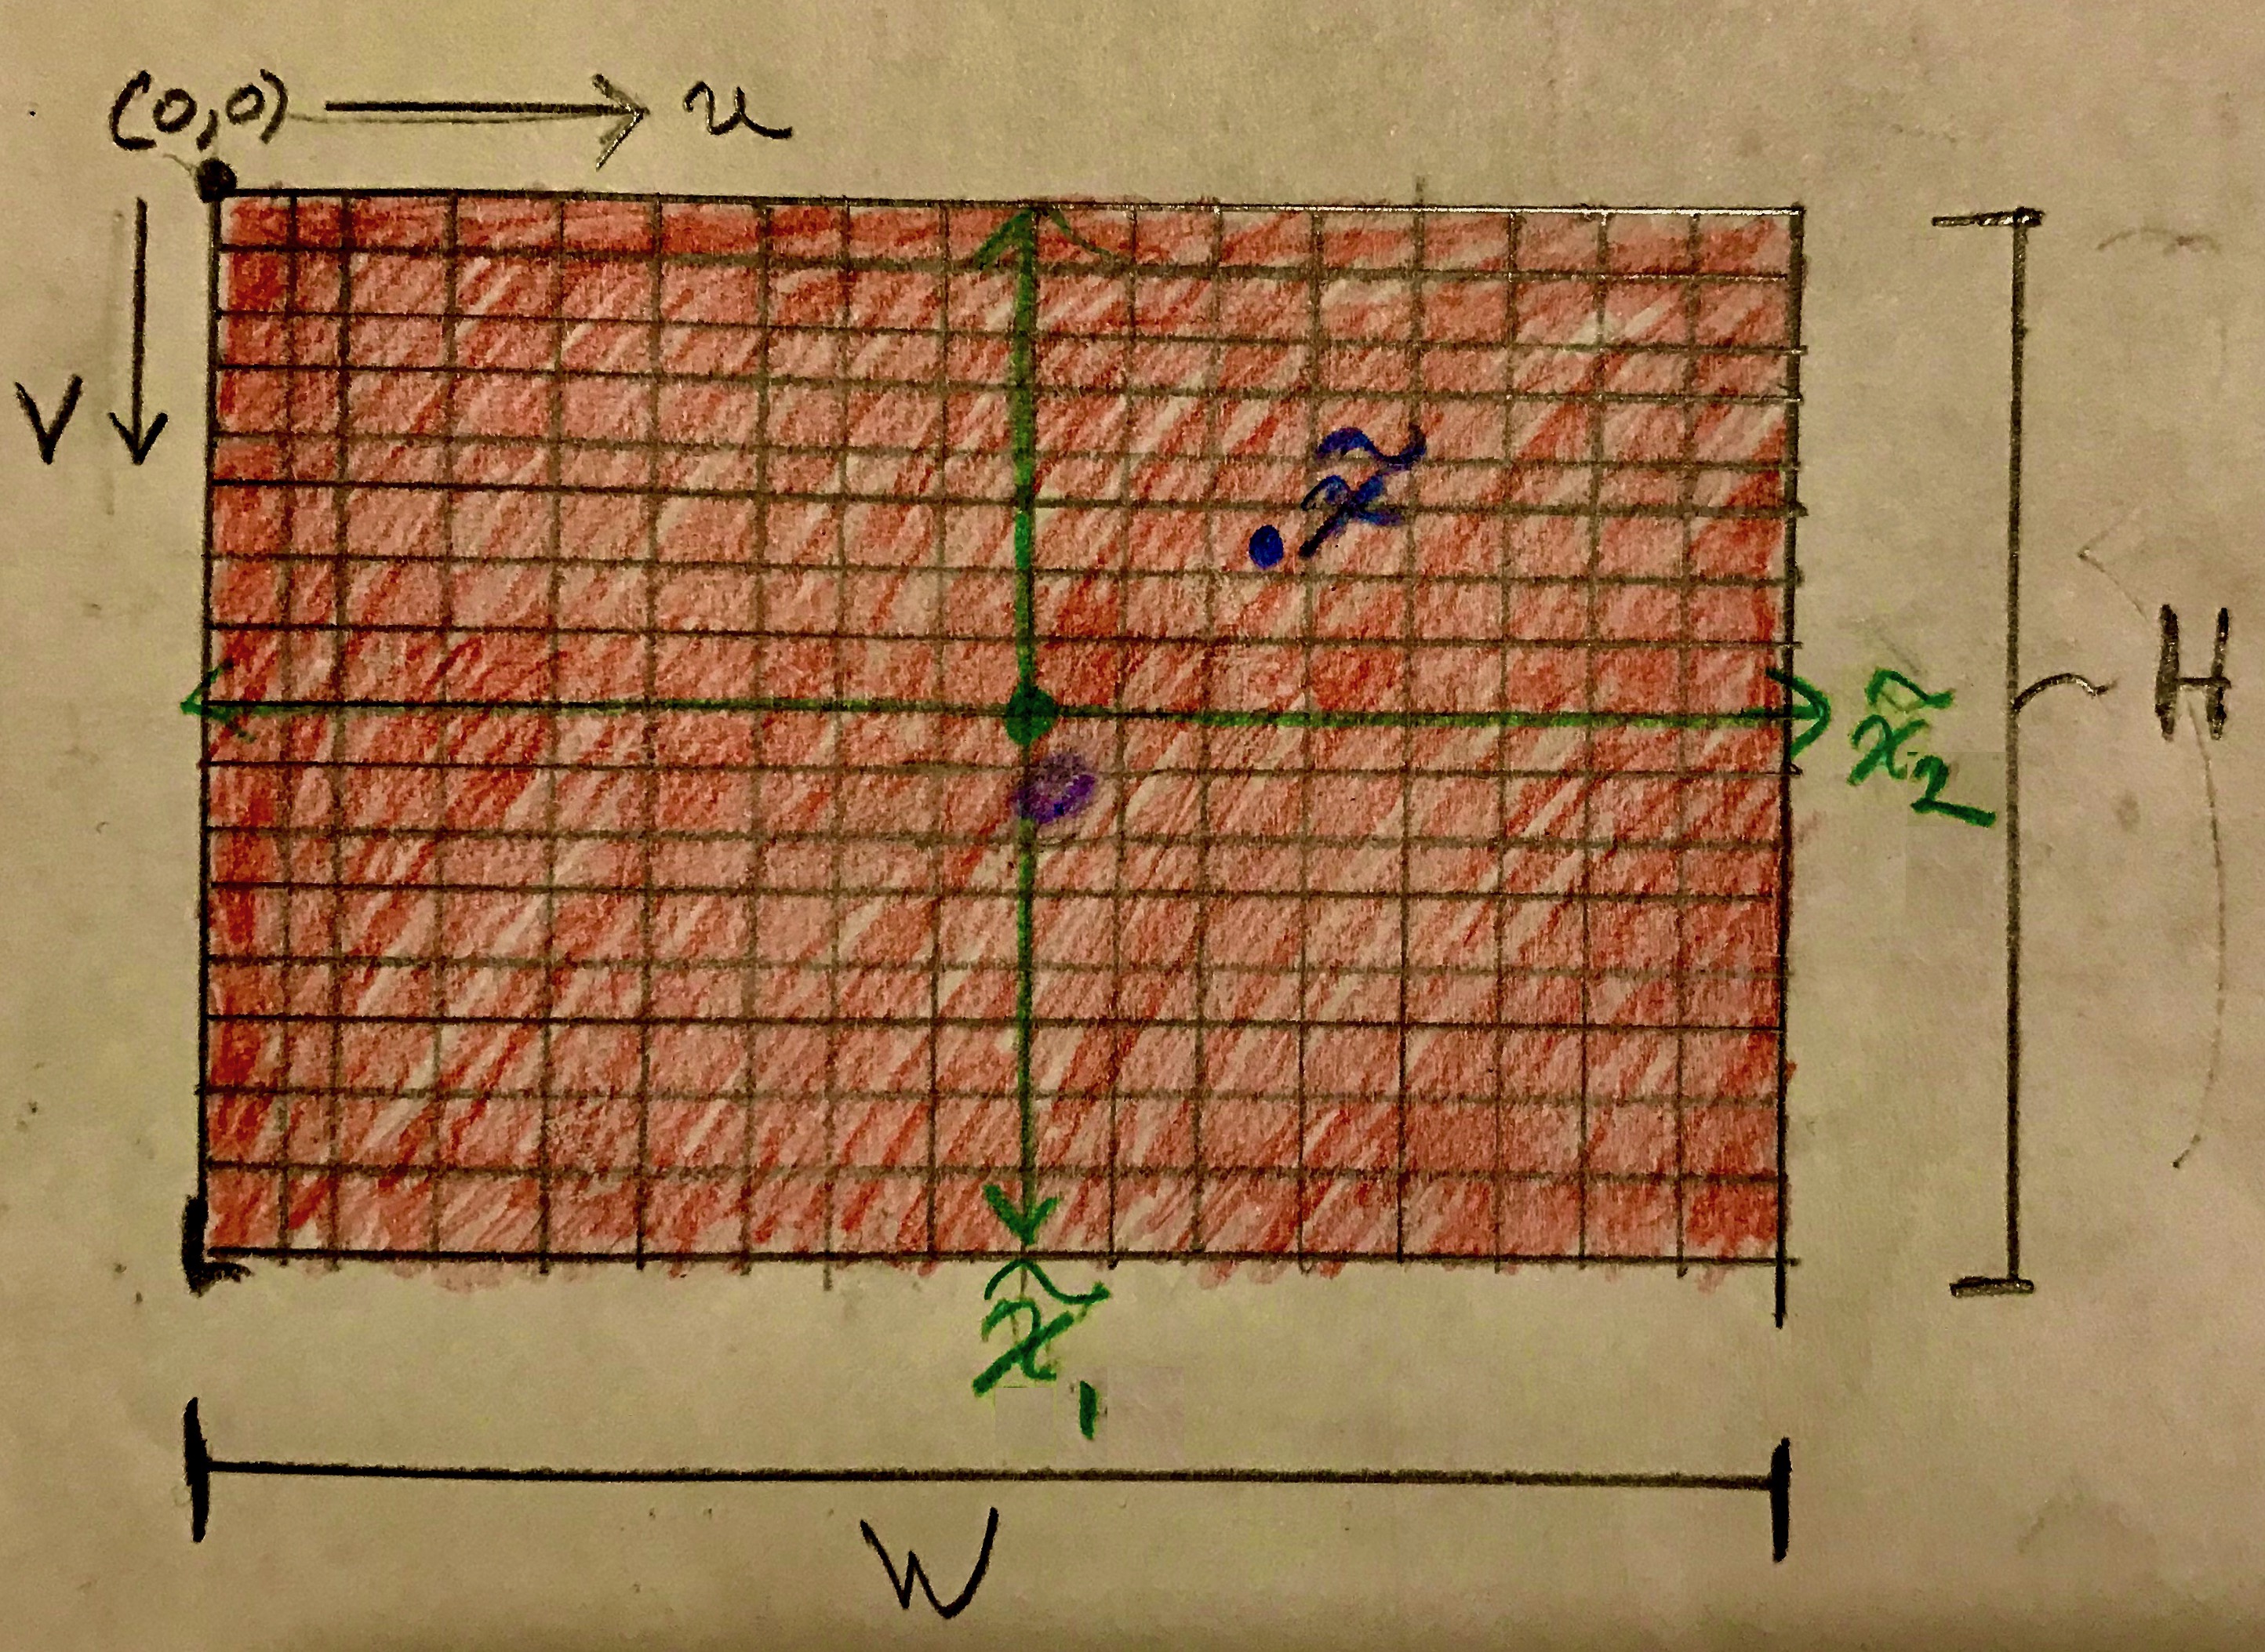 (0,0) → u
V ↓
x̃
H
x̃₂
x̃₁
W